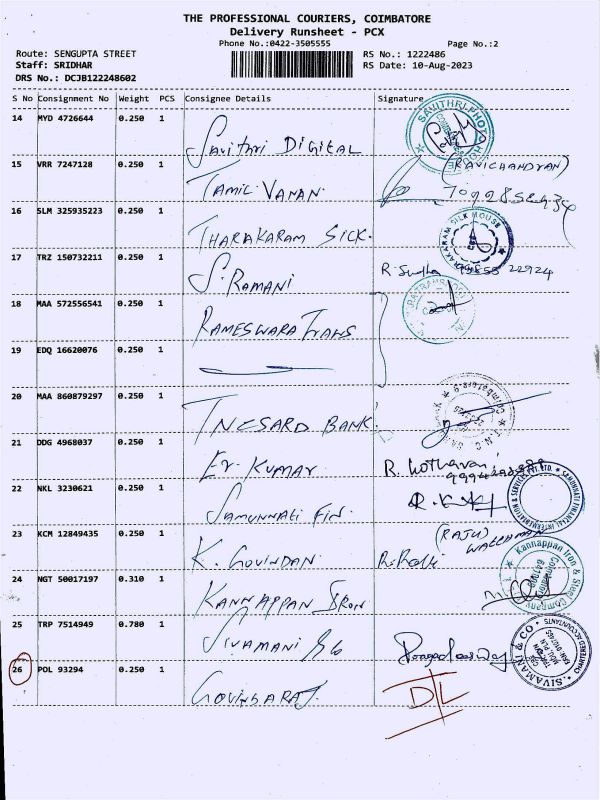 THE PROFESSIONAL COURIERS, COIMBATORE
Delivery Runsheet - PCX
Phone No.:0422-3505555 Page No.:2
Route: SENGUPTA STREET RS No.: 1222486
Staff: SRIDHAR RS Date: 10-Aug-2023
DRS No.: DCJB122248602
S No Consignment No Weight PCS Consignee Details Signature
14 MYD 4726644 0.250 1
Savithri Digital
15 VRR 7247128 0.250 1 (RAVICHANDRAN)
Tamil Vanan
16 SLM 325935223 0.250 1
THARAKARAM SICK.
17 TRZ 150732211 0.250 1 R. Sudha 99855 22924
S. RAMANI
18 MAA 572556541 0.250 1
RAMESWARA Trans
19 EDQ 16620076 0.250 1
20 MAA 860879297 0.250 1
TNESARD BANK
21 DDG 4968037 0.250 1
Er. KUMAR
22 NKL 3230621 0.250 1
Samunnati Fin.
23 KCM 12849435 0.250 1 (RAJU)
K. GOVINDAN
24 NGT 50017197 0.310 1
KANNAPPAN IRON
25 TRP 7514949 0.780 1
SIVAMANI & Co
26 POL 93294 0.250 1 DL
GOVINDARAJ
SAVITHRI PHOTO HOUSE
THARAKARAM SILK HOUSE
Kannappan Iron & Steel Company
Coimbatore
SIVAMANI & CO
CHARTERED ACCOUNTANTS